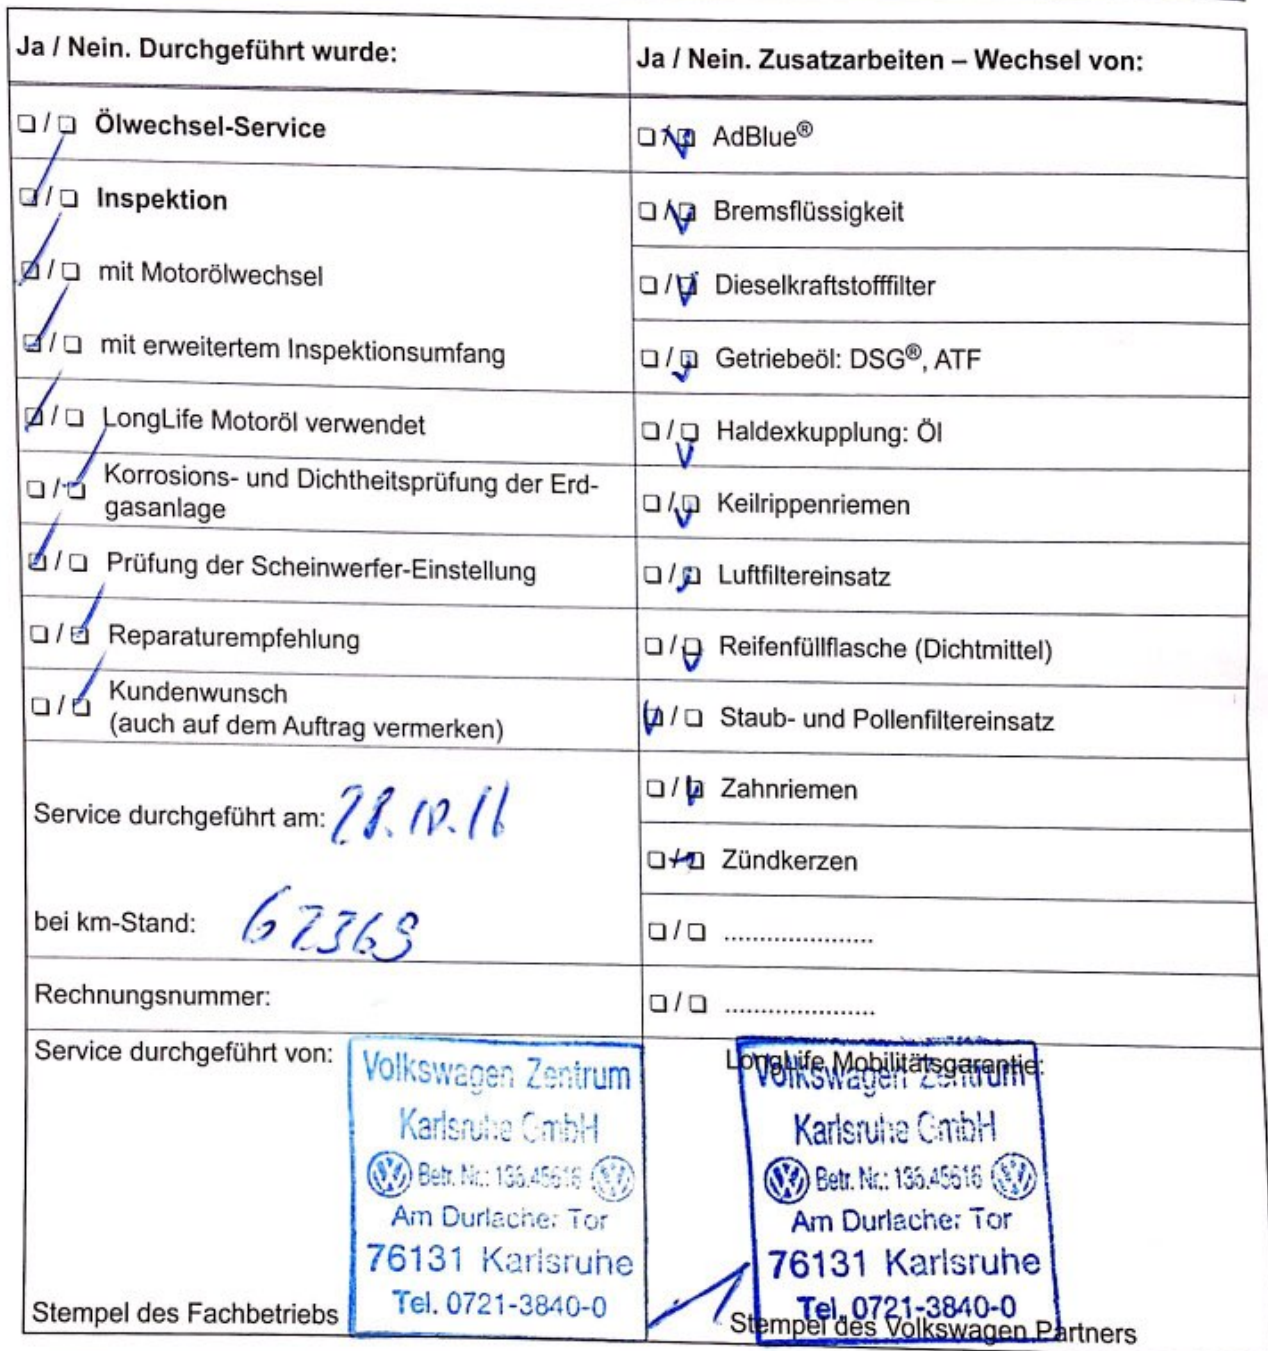 Ja / Nein. Durchgeführt wurde:
Ölwechsel-Service
Inspektion
mit Motorölwechsel
mit erweitertem Inspektionsumfang
LongLife Motoröl verwendet
Korrosions- und Dichtheitsprüfung der Erd-
gasanlage
Prüfung der Scheinwerfer-Einstellung
Reparaturempfehlung
Kundenwunsch
(auch auf dem Auftrag vermerken)
Service durchgeführt am: 28.10.16
bei km-Stand: 62369
Rechnungsnummer:
Service durchgeführt von:
Volkswagen Zentrum
Karlsruhe GmbH
Betr. Nr.: 136.45616
Am Durlacher Tor
76131 Karlsruhe
Tel. 0721-3840-0
Stempel des Fachbetriebs
Ja / Nein. Zusatzarbeiten – Wechsel von:
AdBlue®
Bremsflüssigkeit
Dieselkraftstofffilter
Getriebeöl: DSG®, ATF
Haldexkupplung: Öl
Keilrippenriemen
Luftfiltereinsatz
Reifenfüllflasche (Dichtmittel)
Staub- und Pollenfiltereinsatz
Zahnriemen
Zündkerzen
.....................
.....................
LongLife Mobilitätsgarantie:
Volkswagen Zentrum
Karlsruhe GmbH
Betr. Nr.: 136.45616
Am Durlacher Tor
76131 Karlsruhe
Tel. 0721-3840-0
Stempel des Volkswagen Partners